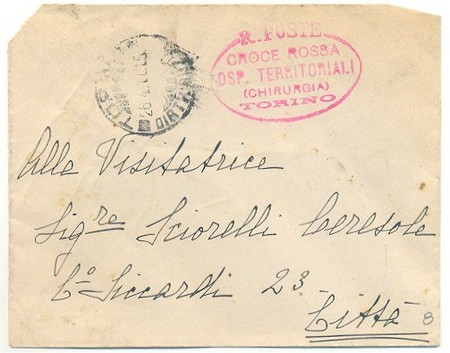 R. POSTE
CROCE ROSSA
OSP. TERRITORIALI
(CHIRURGIA)
TORINO
Alla Visitatrice
Sig.re Sciorelli Ceresole
C.o Siccardi 23
Città
8